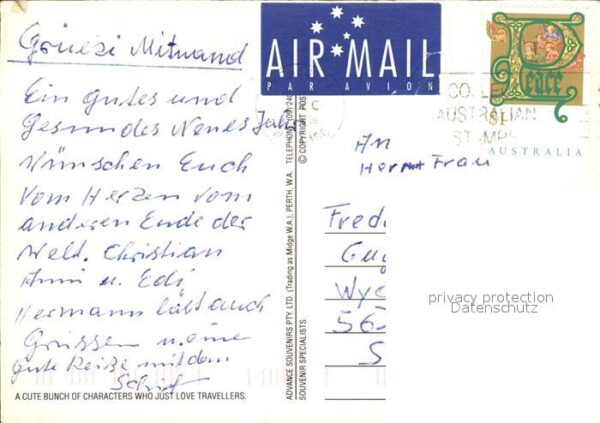 Grüezi Mitnand
Ein gutes und
Gesundes Neues Jahr
Wünschen Euch
Vom Herzen vom
anderen Ende der
Welt. Christian
Anni u. Edi,
Hermann läst auch
Grüssen u. eine
gute Reise mit dem
Schif
A CUTE BUNCH OF CHARACTERS WHO JUST LOVE TRAVELLERS.
ADVANCE SOUVENIRS PTY. LTD. (Trading as Midge W.A.), PERTH, W.A. TELEPHONE (09) 240
SOUVENIR SPECIALISTS
© COPYRIGHT POS
AIR MAIL
PAR AVION
Peace
AUSTRALIAN
AUSTRALIA
An
Herrn Frau
Fred
Gug
Wyd
56
S
privacy protection
Datenschutz